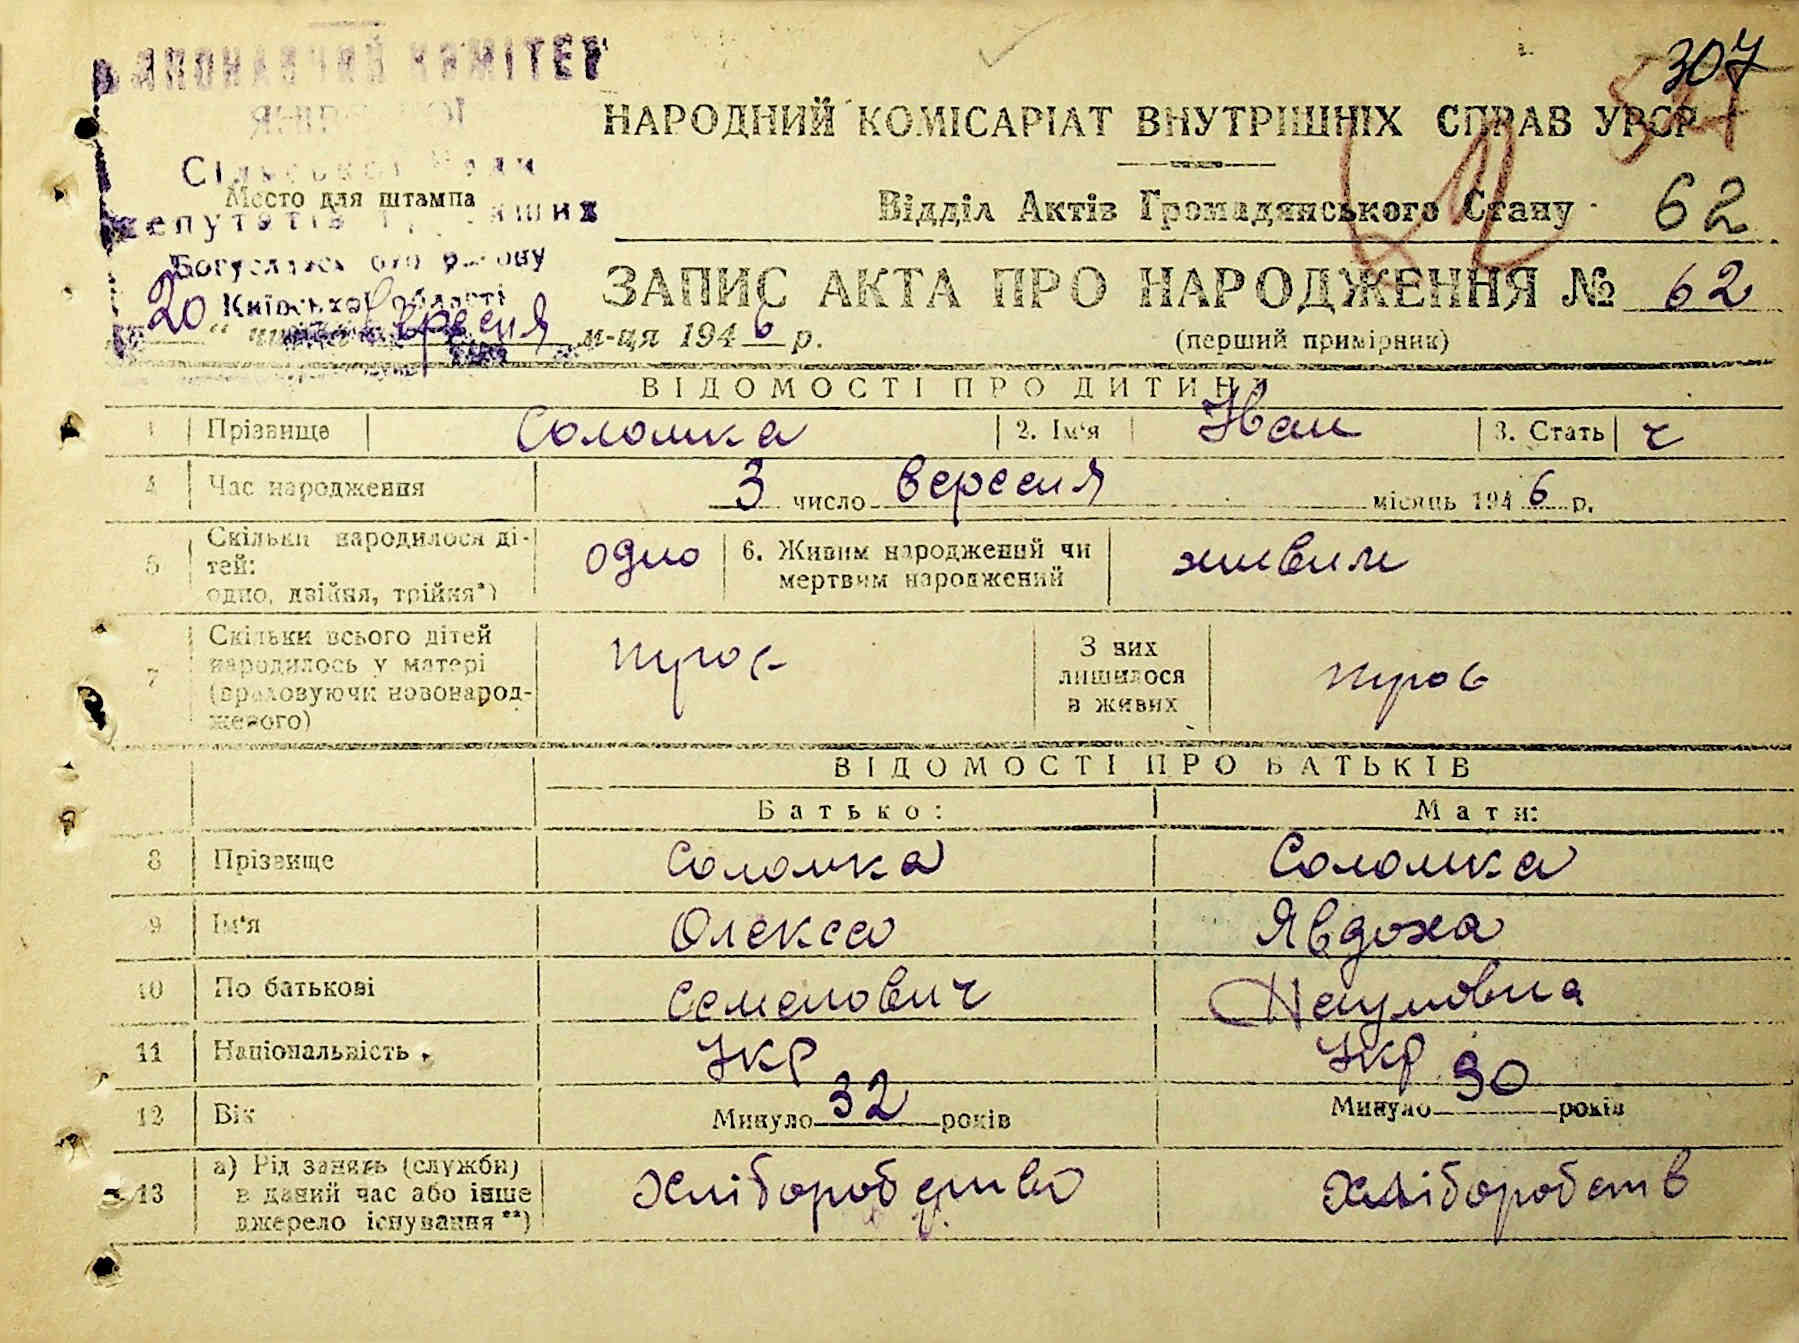 307
ВИКОНАВЧИЙ КОМІТЕТ
НАРОДНИЙ КОМІСАРІАТ ВНУТРІШНІХ СПРАВ УРСР
Сільської Ради
Место для штампа
депутатів трудящих
Відділ Актів Громадянського Стану
62
Богуславського району
Київської області
ЗАПИС АКТА ПРО НАРОДЖЕННЯ № 62
20 вересня м-ця 1946 р.
(перший примірник)
ВІДОМОСТІ ПРО ДИТИНУ
1 Прізвище Соломка 2. Ім'я Иван 3. Стать ч
4 Час народження 3 число вересня місяць 1946 р.
5 Скільки народилося ді-
тей:
одно, двійня, трійня*)
одно
6. Живим народжений чи
мертвим народжений
живим
7 Скільки всього дітей
народилось у матері
(враховуючи новонарод-
женого)
троє
З них
лишилося
в живих
троє
ВІДОМОСТІ ПРО БАТЬКІВ
Батько: Мати:
8 Прізвище Соломка Соломка
9 Ім'я Олекса Явдоха
10 По батькові Семенович Наумовна
11 Національність Укр Укр
12 Вік Минуло 32 років Минуло 30 років
13 а) Рід занять (служби)
в даний час або інше
джерело існування**)
Хліборобство Хліборобств